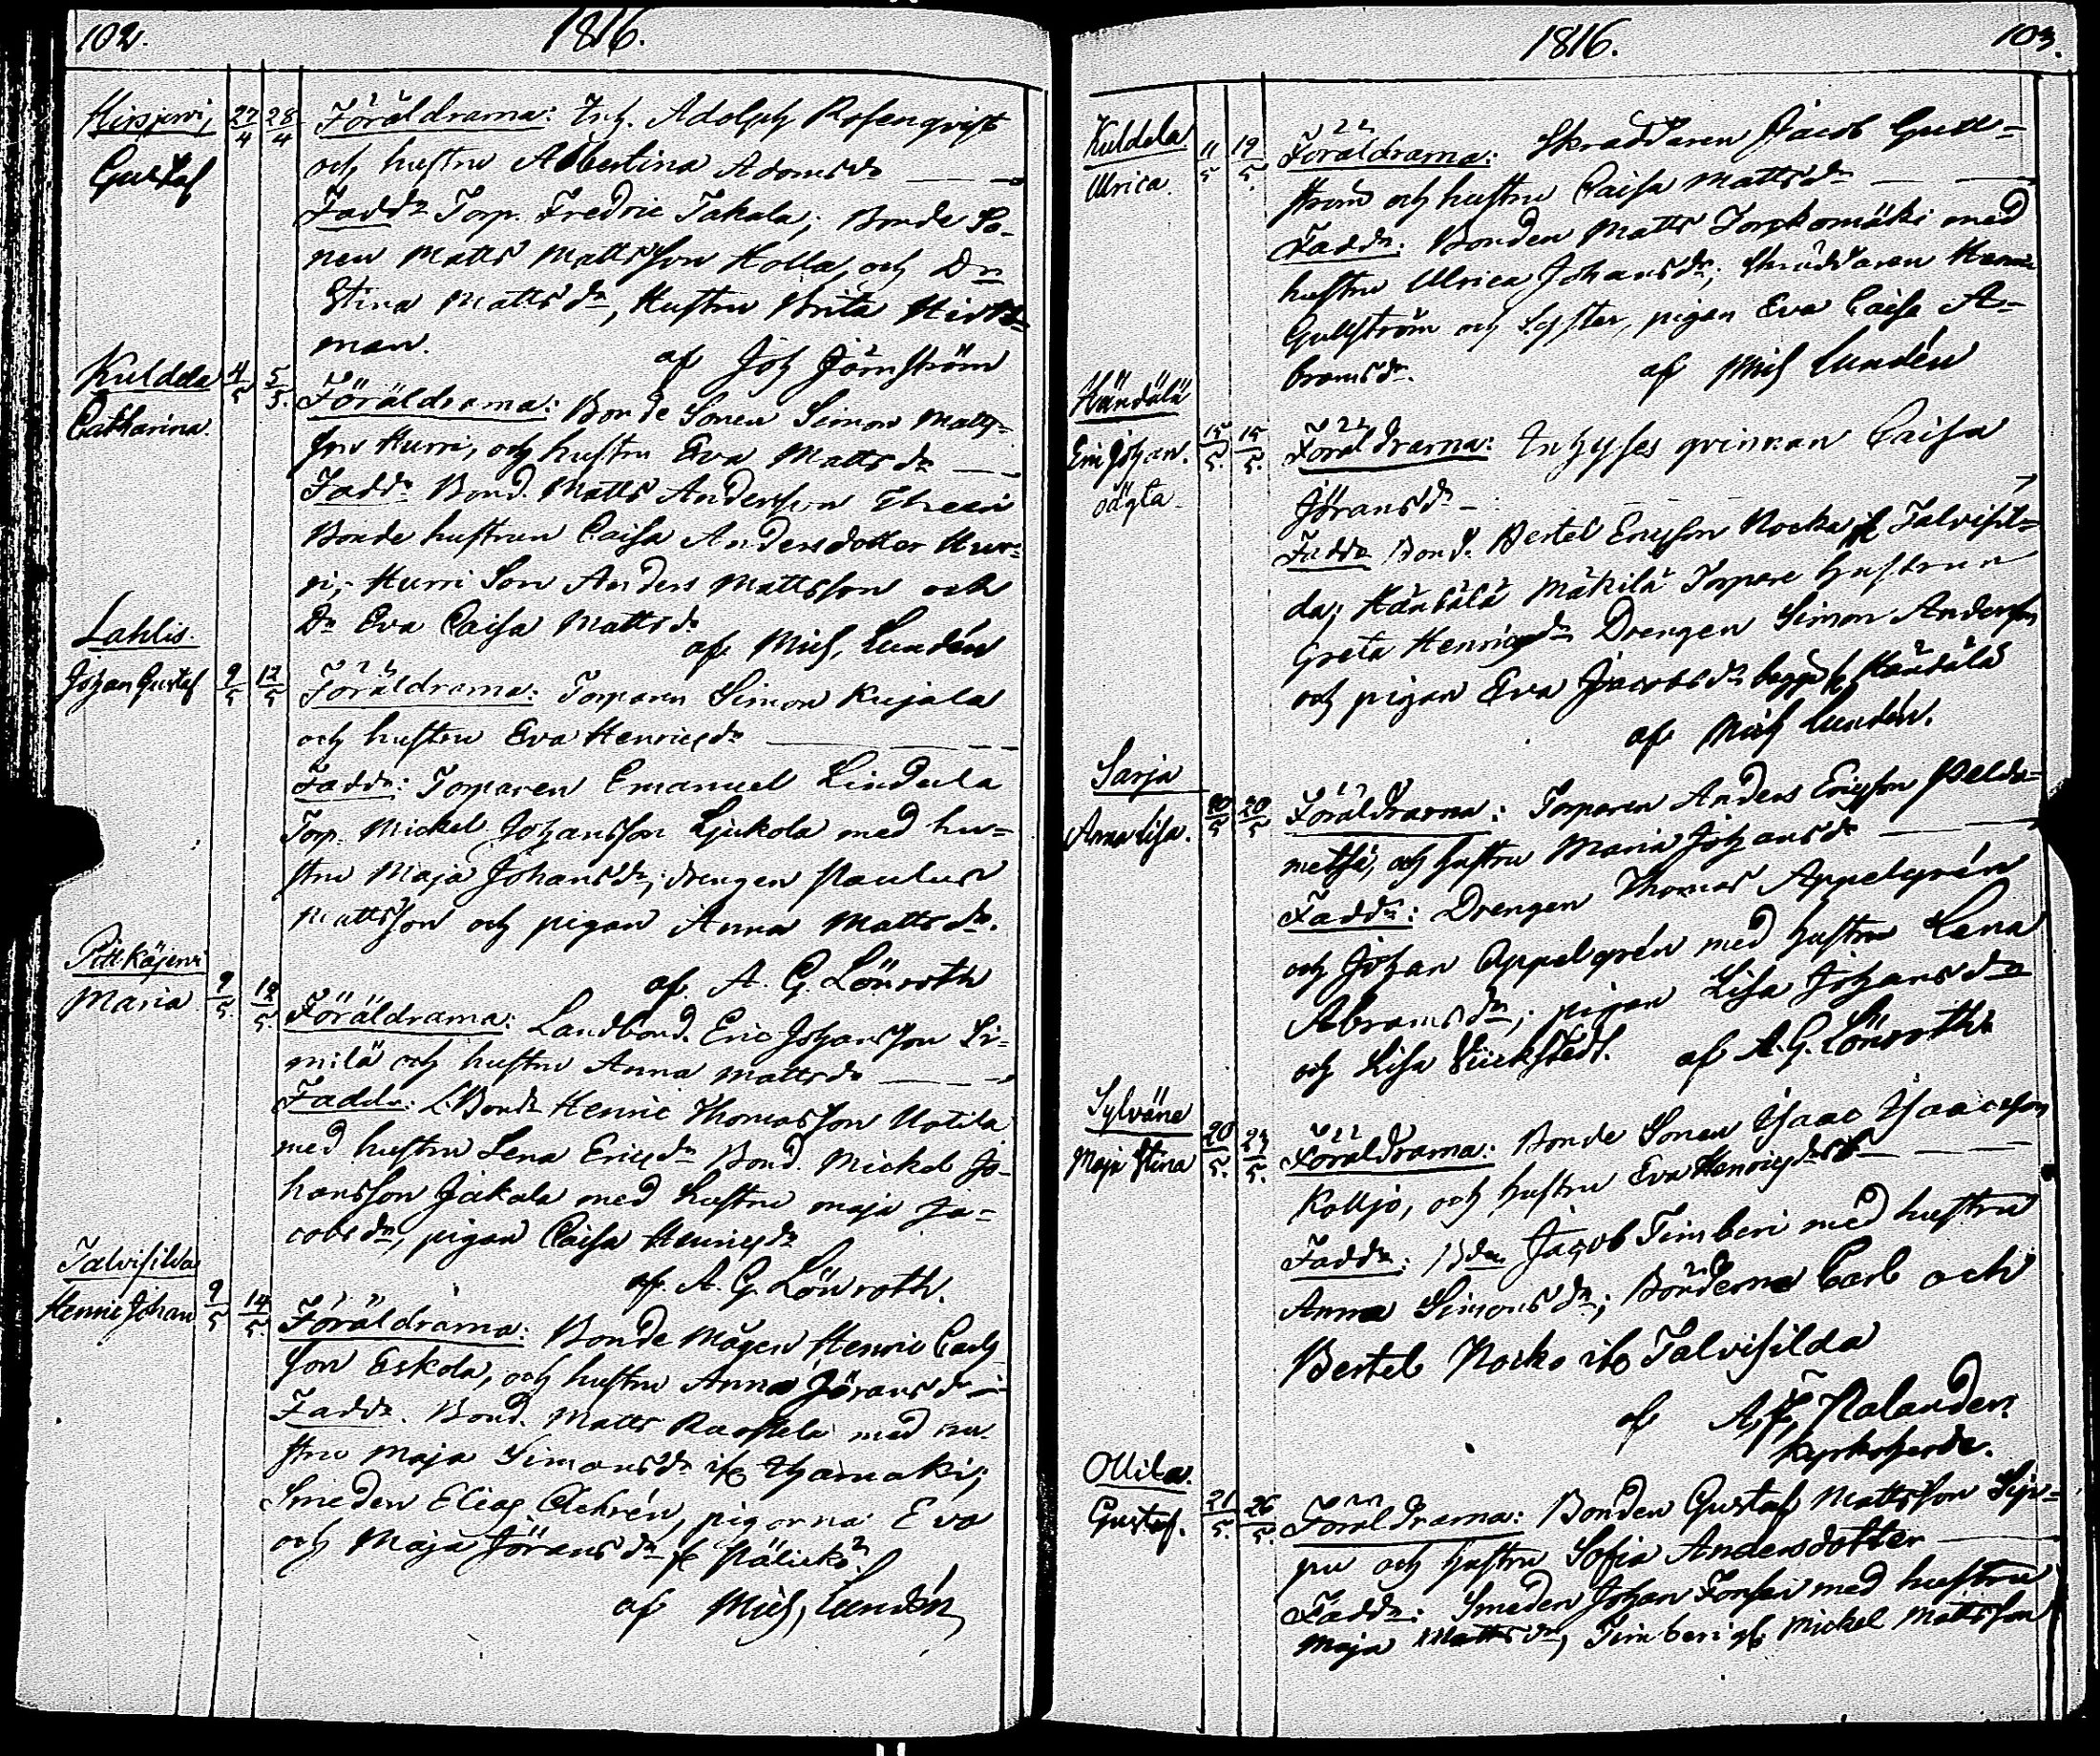 102.
1816.
Hirsjervi,
Gustaf
27/4 28/4
Föräldrarna: Inh. Adolph Rosenqvist
och hustru Albertina Adamsdr
Faddr Torp. Fredric Takala; Bonde So-
nen Matts Mattsson Kolla, och Dr
Stina Mattsdr, Hustru Brita
man.
af Joh Jörnström
Kuldela
Catharina.
4/5 5/5.
Föräldrarna: Bonde Sonen Simon Matts-
son Hurri, och hustru Eva Mattsdr
Faddr Bond. Matts Andersson
Bonde hustrun Caisa Andersdotter Hur-
ri; Hurri Son Anders Mattsson och
Dr Eva Caisa Mattsdr
af Mich, Lundén
Lahlis.
Johan Gustaf
9/5 12/5
Föräldrarna: Torparen Simon Kujala
och hustru Eva Henricsdr
Faddr: Torparen Emanuel Lindula
Torp. Mickel Johansson Ljukola med hu-
stru Maja Johansdr; drengen Paulus
Mattsson och pigan Anna Mattsdr.
af. A. G. Lönroth
Pitkäjervi
Maria
9/5. 12/5.
Föräldrarna: Landbond. Eric Johansson Si-
milä och hustru Anna Mattsdr
Faddr: L.Bondr Henric Thomasson Uotila
med hustru Lena Ericsdr Bond. Mickel Jo-
hansson Jakala med hustru Maja Ja-
cobsdr, pigan Caisa Henricsdr
af. A. G. Lönroth.
Talvisilda
Henric Johan
9/5 14/5.
Föräldrarna: Bonde Mågen Henric Carls-
son Eskola, och hustru Anna Jöransdr
Faddr. Bond. Matts Raskela med hu-
stru Maja Simonsdr
Smeden Elias pigorna Eva
och Maja Jöransdr
af Mich, Lundén
1816.
103.
Kuldela
Ulrica.
11/5 19/5.
Föräldrarna: Skräddaren Jacob Gull-
ström och hustru Caisa Mattsdr
Faddr: Bonden Matts Torpkomäki med
hustru Ulrica Johansdr; Skräddaren
Gullström och Syster, pigan Eva Caisa A-
bramsdr.
af Mich Lundén
Händälä
Eric Johan.
oägta
15/5. 15/5.
Föräldrarna: Inhyses qvinnan Caisa
Jöransdr
Faddr Bond. Bertel Ericsson Nocka fr Talvisil-
da; Händälä Mäkilä Torpare hustrun
Greta Henricsdr Drengen Simon Andersson
och pigan Eva Jacobsdr bägge fr Händälä
af Mich Lundén.
Sarja
Anna Lisa.
20/5 20/5
Föräldrarna: Torparen Anders Ericsson Peldo-
metsä, och hustru Maria Johansdr
Faddr: Drengen Thomas Appelgrén
och Johan Appelgrén med hustru Lena
Abramsdr; pigan Lisa Johansdr
och Lisa
af A. G. Lönroth
Sylväne
Maja Stina
20/5. 23/5.
Föräldrarna: Bonde Sonen Isaac Isaacsson
Kolljo, och hustru Eva Henricsdr
Faddr: Bdn Jacob Timberi med hustru
Anna Simonsdr; Bönderna Carl och
Bertel Nocko Talvisilda
af A, F, Nalander.
Kyrkoherde.
Ollila.
Gustaf.
21/5. 26/5.
Föräldrarna: Bonden Gustaf Mattsson Sip-
pu och hustru Sofia Andersdotter
Faddr: Smeden Johan med hustru
Maja Mattsdr, Timberi Mickel Mattsson